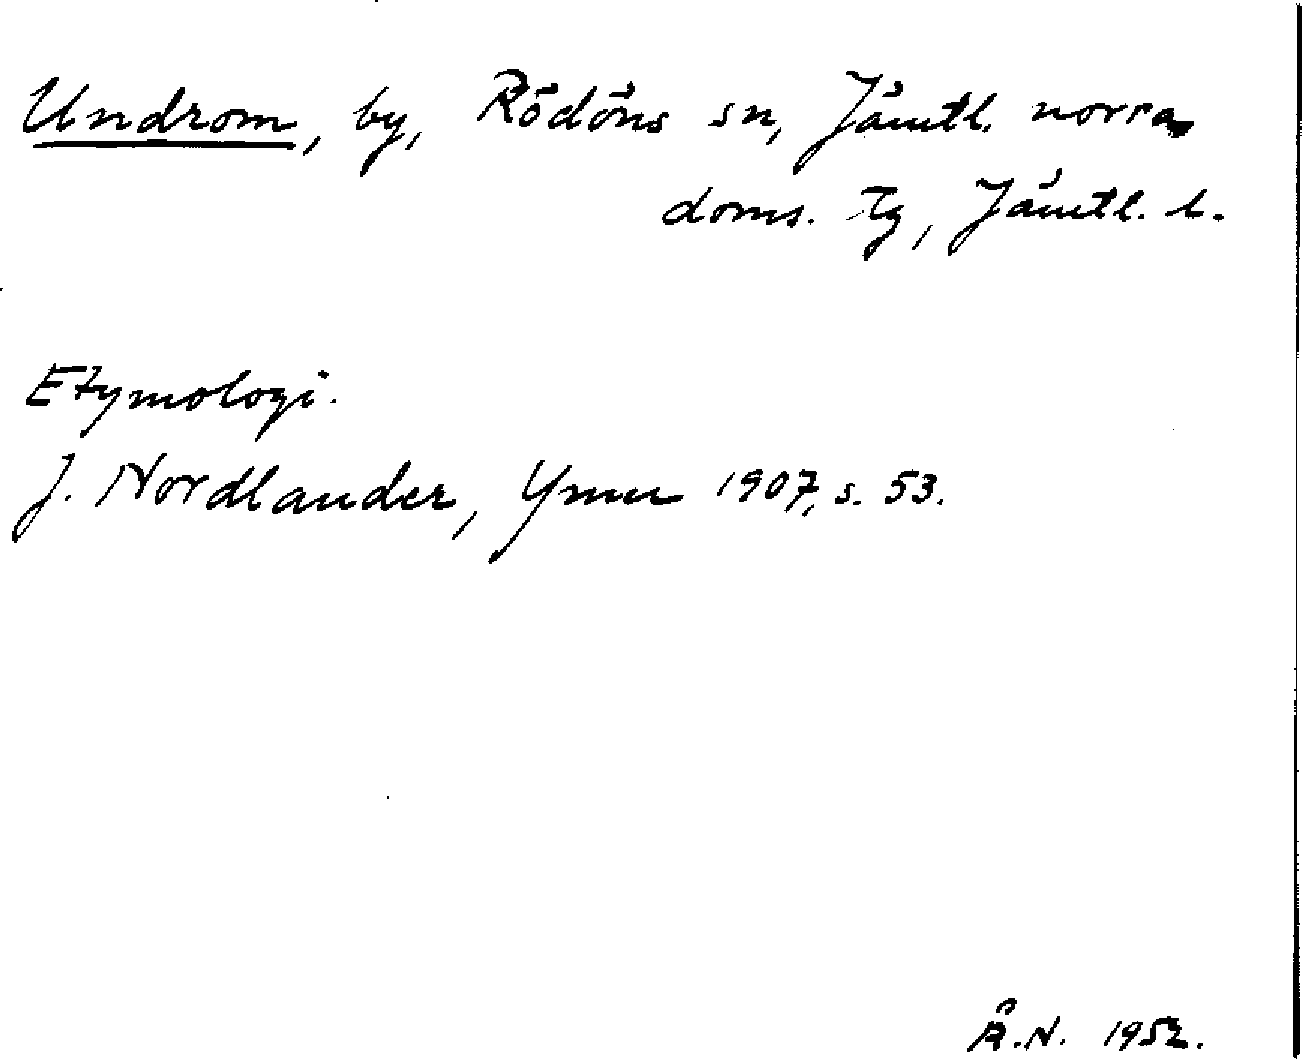 Undrom, by, Rödöns sn, Jämtl. norra
doms. Tg, Jämtl. l.
Etymologi.
J. Nordlander, Ymer 1907, s. 53.
R.N. 1952.